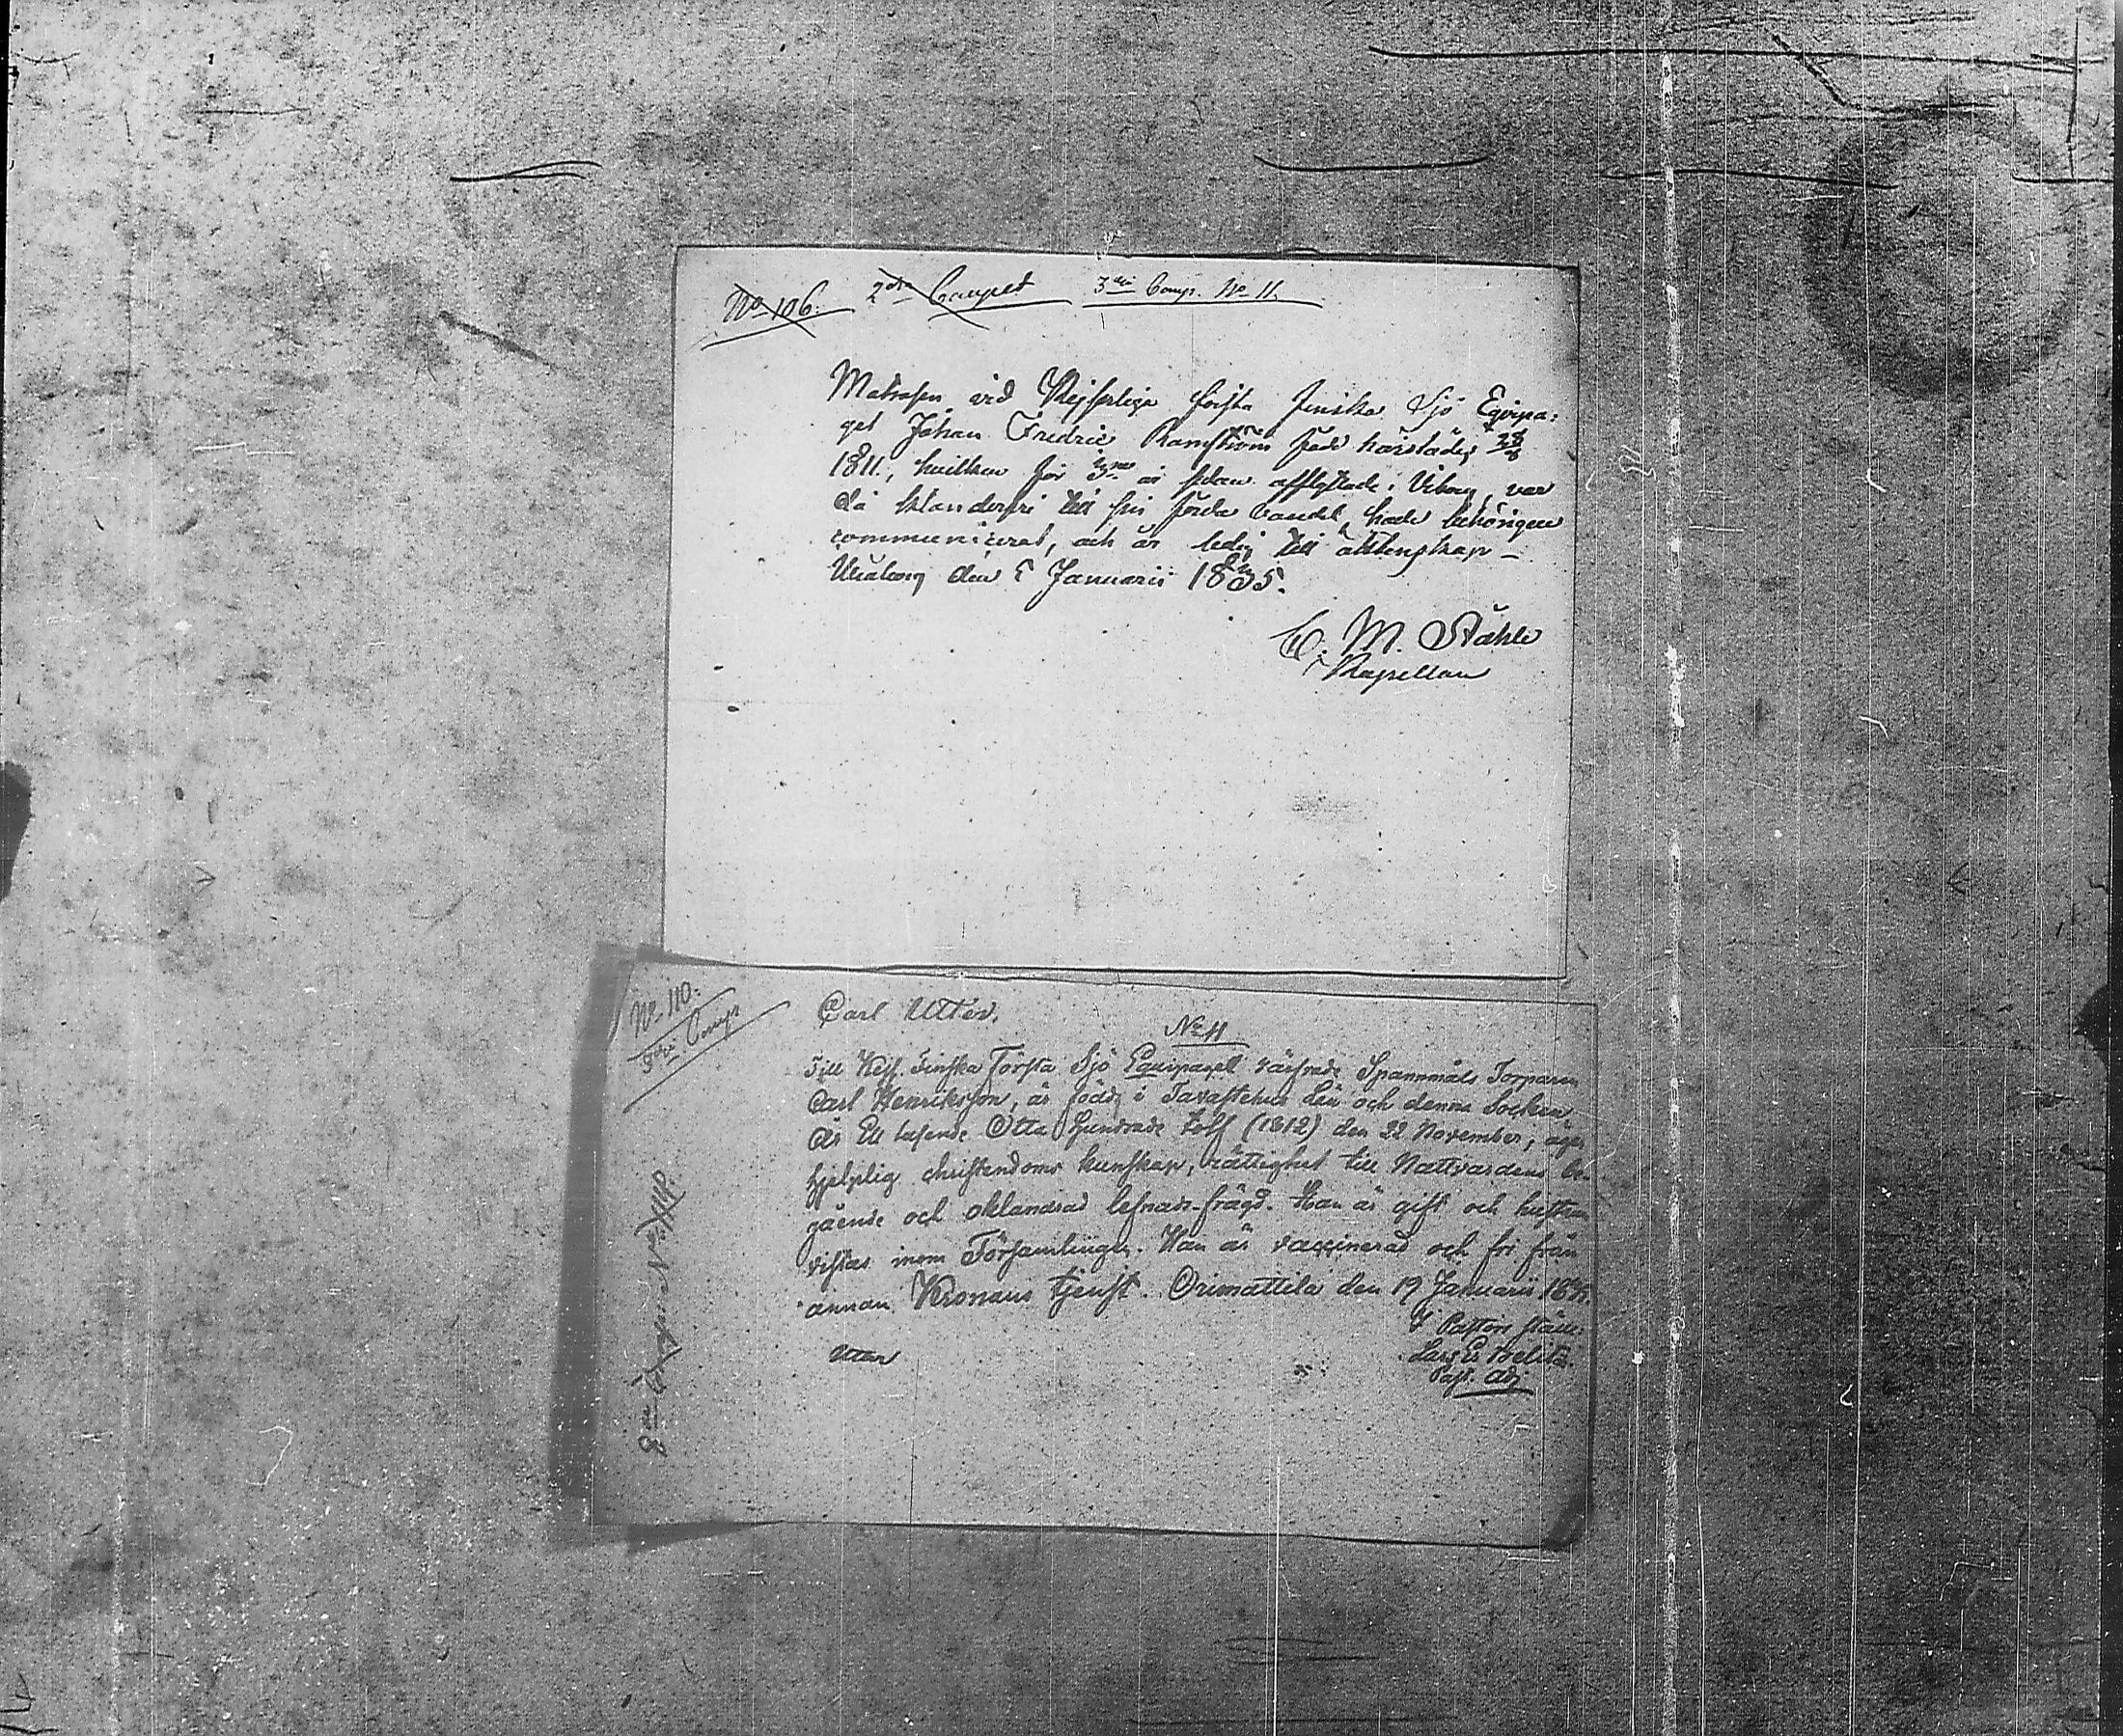 No 106. 2dra Compet 3die Comp. No 11.
Matrosen vid Kejserliga första finska Sjö Eqvipa-
get Johan Fredric Ramström född härstädes 28/8
1811, hvilken för 3ne år sedan afflyttade i Viborg, var
då klanderfri till sin förda vandel, hade behörigen
communicerat, och är ledig till äktenskap –
den 5 Januarii 1835.
C. M. Ståhle
Kapellan
No 110:
3die Comp
Carl Utter.
No 11
Till Kejs. Finska Första Sjö Equipaget värfvade Spannmåls Torparen
Carl Henriksson, är född i Tavastehus Län och denna Socken
År Ett tusende Otta Hundrade tolf (1812) den 22 November, äger
hjelplig christendoms kunskap, rättighet till Nattvardens be-
gående och oklandrad lefnads-frägd. Han är gift och hustrun
vistas inom Församlingen. Han är vaccinerad och fri från
annan Kronans tjenst. Orimattila den 19 Januarii
I Pastors ställe:
Utter
Past. Adj.